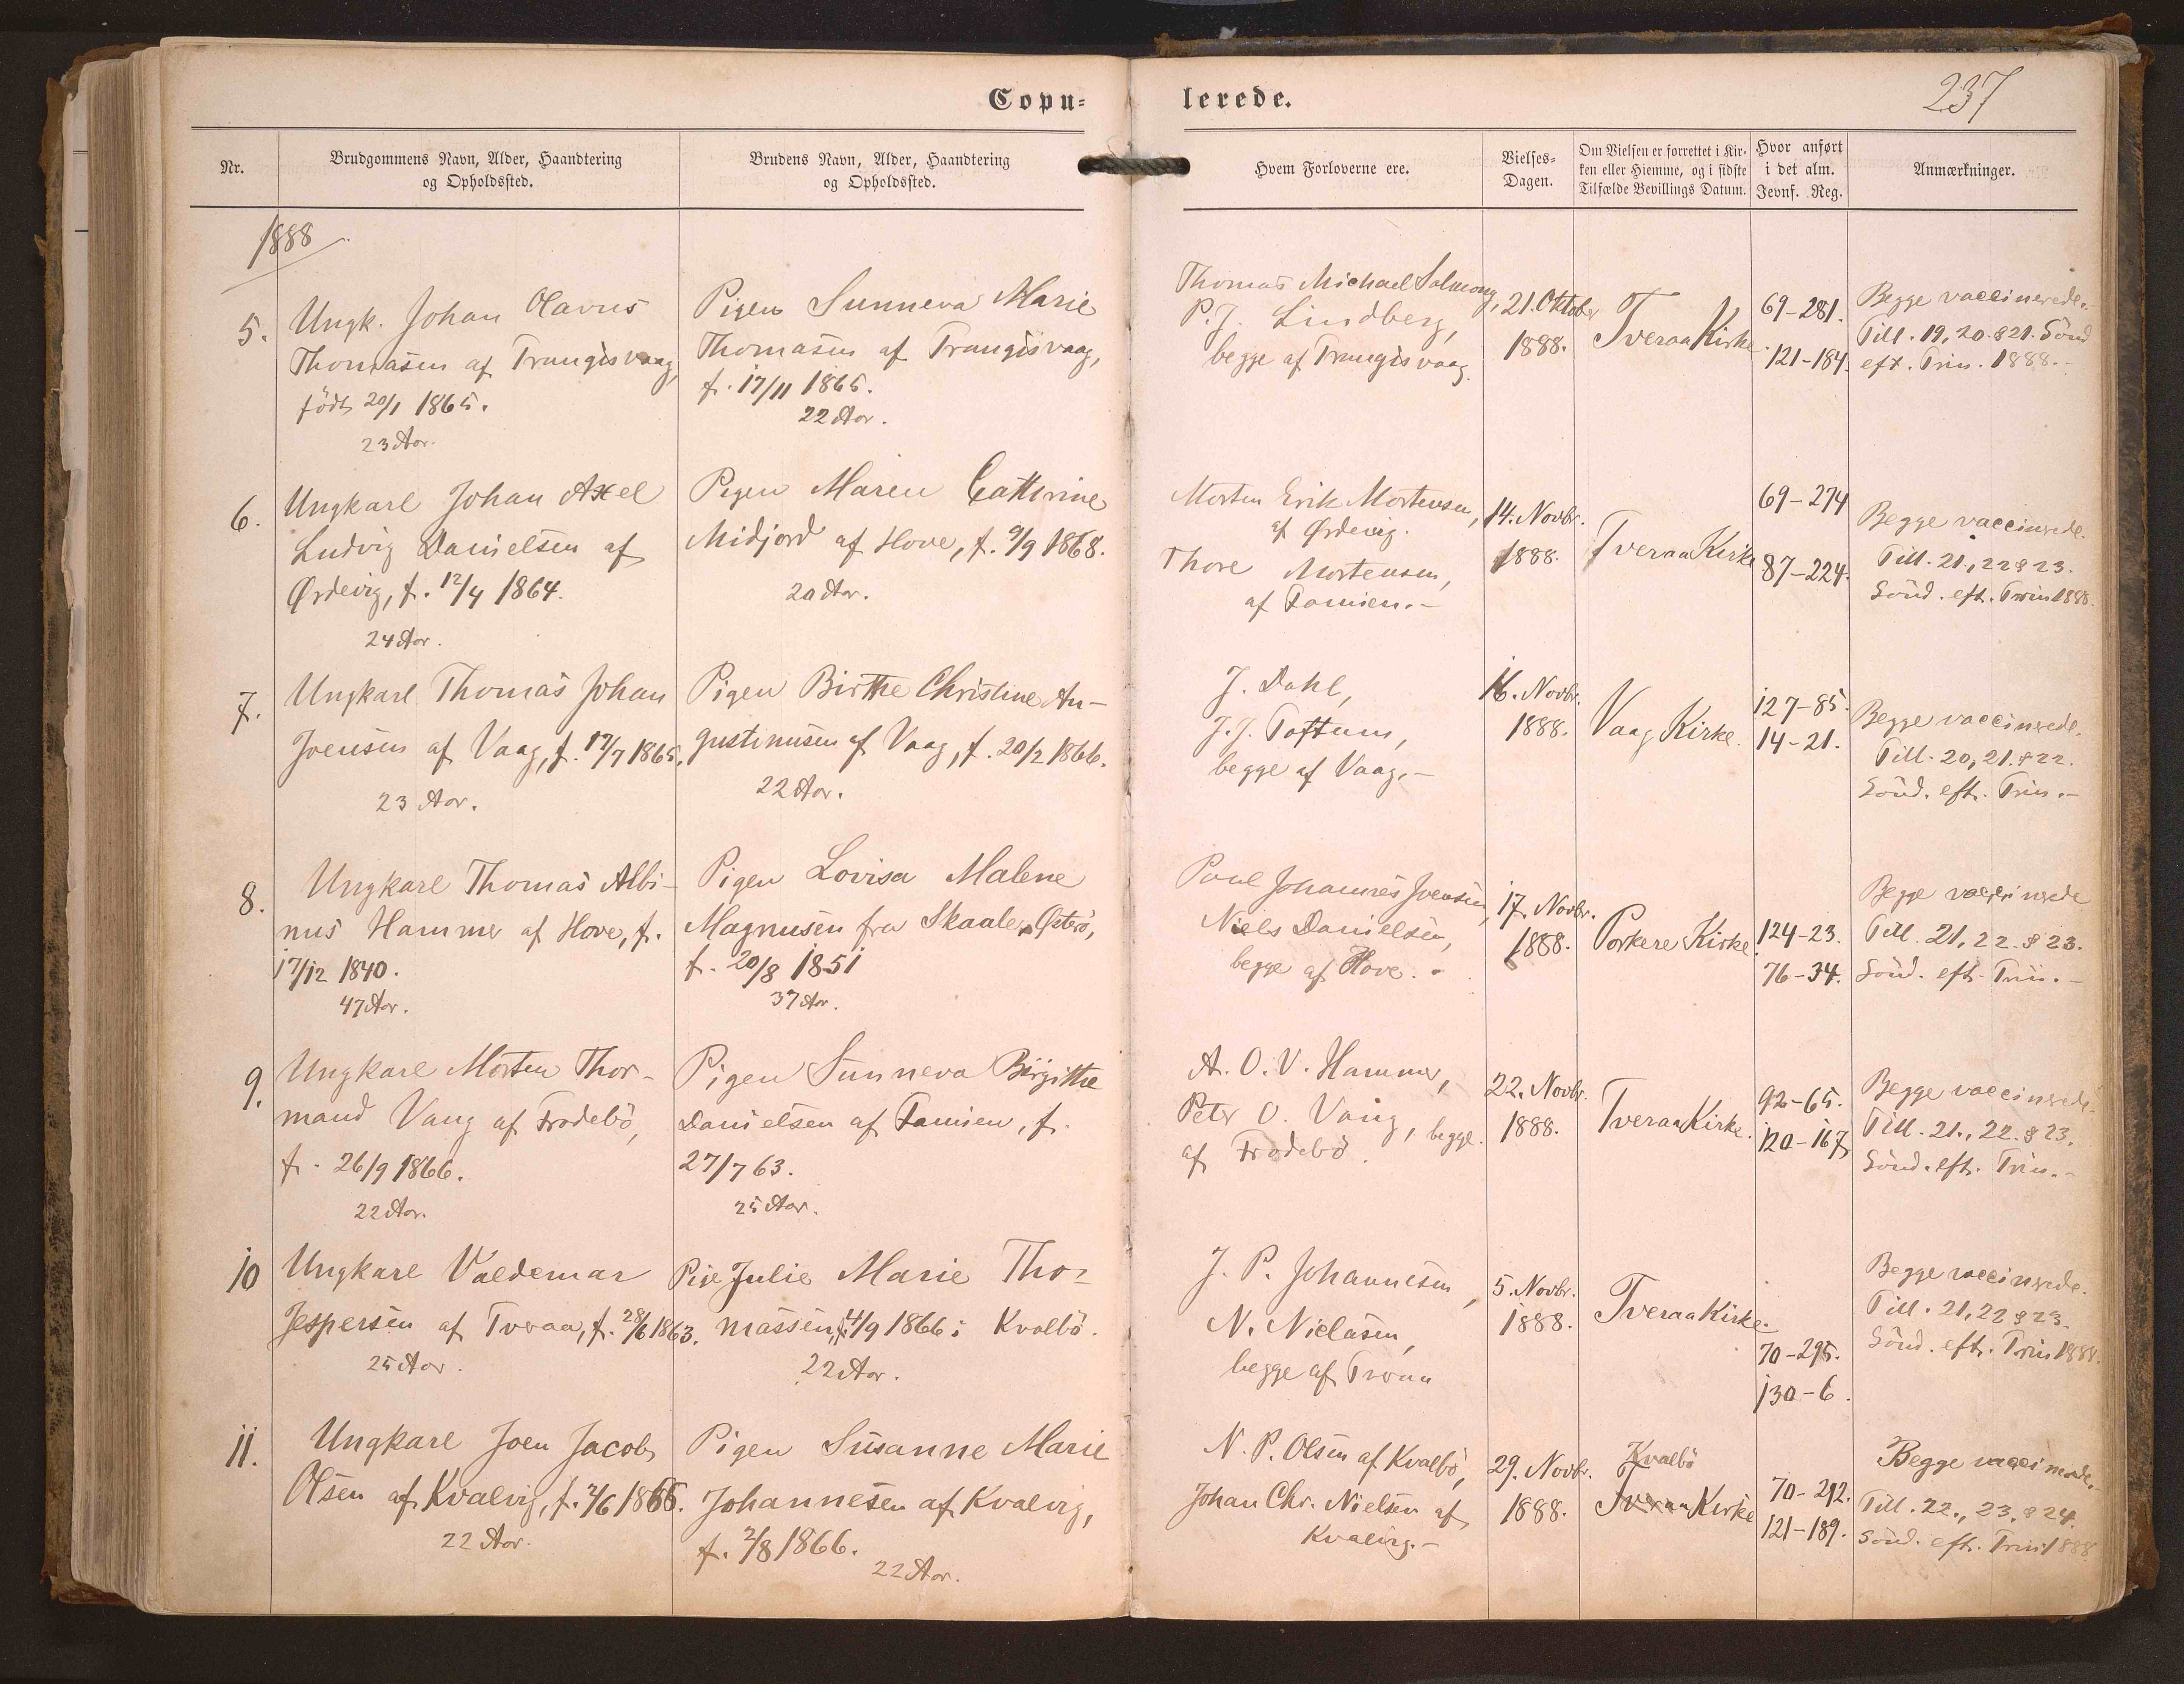 Copu-
lerede.
237
Nr.
Brudgommens Navn, Alder, Haandtering
og Opholdssted.
Brudens Navn, Alder, Haandtering
og Opholdssted.
Hvem Forloverne ere.
Vielses-
Dagen.
Om Vielsen er forrettet i Kir-
ken eller Hiemme, og i sidste
Tilfælde Bevillings Datum.
Hvor anført
i det alm.
Jevnf. Reg.
Anmærkninger.
1888
5.
Ungk. Johan Olavus
Thomasen af Trangisvaag,
født 20/1 1865.
23 Aar.
Pigen Sunneva Marie
Thomasen af Trangisvaag,
f. 17/11 1865.
22 Aar.
Thomas Michael Salmony,
P. J. Lindberg,
begge af Trangisvaag.
21. Oktober
1888.
Tveraa Kirke.
69-281.
121-184.
Begge vaccinerede.
Till. 19, 20. & 21. Sönd
eft. Trin. 1888.-
6.
Ungkarl Johan Axel
Ludvig Danielsen af
Ørdevig, f. 12/4 1864.
24 Aar.
Pigen Maren Cathrine
Midjord af Hove, f. 9/9 1868.
20 Aar.
Morten Erik Mortensen,
af Ørdevig.
Thore Mortensen,
af Famien.-
14. Novbr.
1888.
Tveraa Kirke
69-274
87-224.
Begge vaccinrede.
Till. 21., 22 & 23.
Sönd. eft. Trin 1888.
7.
Ungkarl Thomas Johan
Joensen af Vaag, f. 17/7 1865.
23 Aar.
Pigen Birthe Christine Au-
gustinusen af Vaag, f. 20/2 1866.
22 Aar.
J. Dahl,
J. J. Toftum,
begge af Vaag.-
16. Novbr.
1888.
Vaag Kirke.
127-85.
14-21.
Begge vaccinrede.
Till. 20, 21. & 22.
Sönd. eft. Trin.-
8.
Ungkarl Thomas Albi-
nus Hammer af Hove, f.
17/12 1840.
47 Aar.
Pigen Lovisa Malene
Magnusen fra Skaale, Østerö,
f. 20/8 1851
37 Aar.
Poul Johannes Joensen,
Niels Danielsen,
begge af Hove.
17. Novbr.
1888.
Porkere Kirke
124-23.
76-34.
Begge vaccinrede
Till. 21, 22. & 23.
Sönd. eft. Trin.-
9.
Ungkarl Morten Thor-
mand Vang af Frodebö,
f. 26/9 1866.
22 Aar.
Pigen Sunneva Birgitthe
Danielsen af Famien, f.
27/7 63.
25 Aar.
A. O. V. Hammer,
Peter O. Vang, begge
af Frodebö.
22. Novbr.
1888.
Tveraa Kirke.
92-65.
120-167
Begge vaccinrede.
Till. 21., 22. & 23.
Sönd. eft. Trin.-
10
Ungkarl Valdemar
Jespersen af Tveraa, f. 28/6 1863.
25 Aar.
Pige Julie Marie Tho-
massen, f. 14/9 1866 i Kvalbö.
22 Aar.
J. P. Johannesen,
N. Nielasen,
begge af Tvöraa
5. Novbr.
1888.
Tveraa Kirke.
70-295.
130-6.
Begge vaccinrede.
Till. 21, 22 & 23.
Sönd. eft. Trin 1888.
11.
Ungkarl Joen Jacob
Olsen af Kvalvig, f. 2/6 1866.
22 Aar.
Pigen Susanne Marie
Johannesen af Kvalvig,
f. 2/8 1866.
22 Aar.
N. P. Olsen af Kvalbö,
Johan Chr. Nielsen af
Kvalvig.-
29. Novbr.
1888.
Kvalbö
Tveraa Kirke
70-292.
121-189.
Begge vaccinrede.
Till. 22., 23. & 24.
Sönd. eft. Trin. 1888